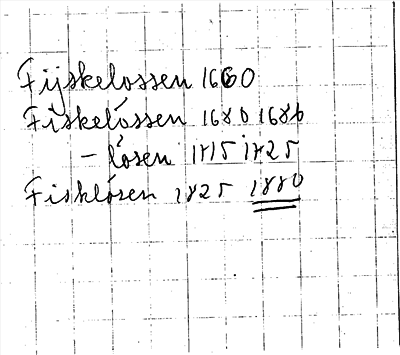 Fijskelossen 1660
Fiskelóssen 1680 1686
- lósen 1715 1725
Fisklósen 1825 1880